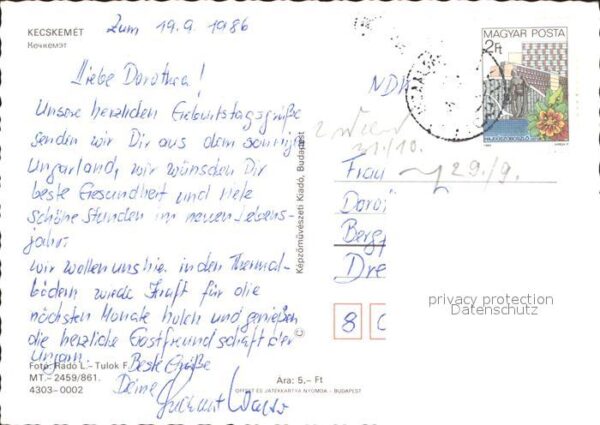 KECSKEMÉT
Кечкемэт
Zum 19.9.1986
Liebe Dorothea!
Unsere herzlichen Geburtstagsgrüße
senden wir Dir aus dem sonnigen
Ungarland, wir wünschen Dir
beste Gesundheit und viele
schöne Stunden im neuen Lebens-
jahr.
Wir wollen uns hier in den Thermal-
bädern wieder Kraft für die
nächsten Monate holen und genießen
die herzliche Gastfreundschaft der
Ungarn.
Beste Grüße
Deine
Fotó: Radó L.- Tulok F.
MT.- 2459/861.
4303-0002
Ára: 5,- Ft
OFFSET ÉS JÁTÉKKÁRTYA NYOMDA - BUDAPEST
Képzőművészeti Kiadó, Budapest
MAGYAR POSTA
2Ft
HAJDÚSZOBOSZLÓ
31./10.
29./9.
Frau
Doro
Berg
Dre
8
privacy protection
Datenschutz